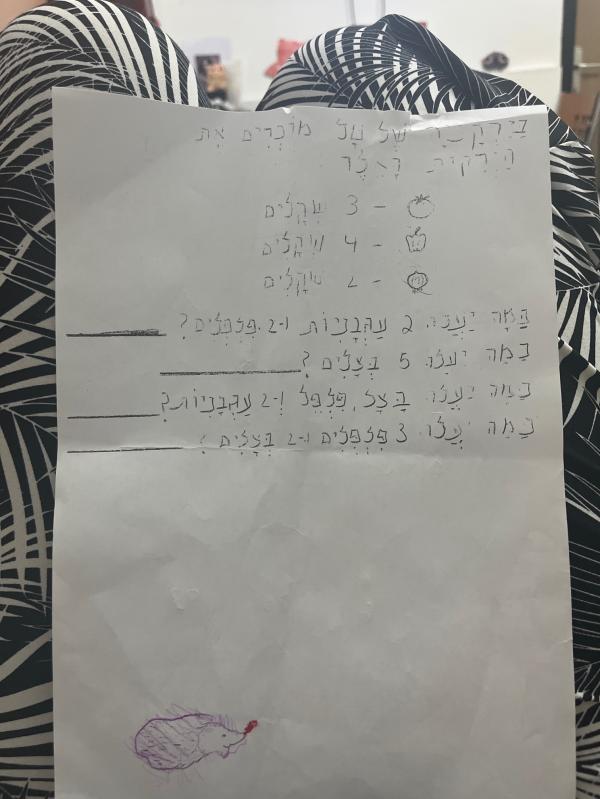 של טל מוכרים את
3 - שְׁקָלִים
4 - שְׁקָלִים
2 - שְׁקָלִים
כַּמָּה יַעֲלוּ 2 עַגְבָנִיּוֹת ו-2 פִּלְפְּלִים?
כַּמָּה יַעֲלוּ 5 בְּצָלִים?
כַּמָּה יַעֲלוּ בָּצָל, פִּלְפֵּל וְ-2 עַגְבָנִיּוֹת?
כַּמָּה יַעֲלוּ 3 פִּלְפְּלִים ו-2 בְּצָלִים?